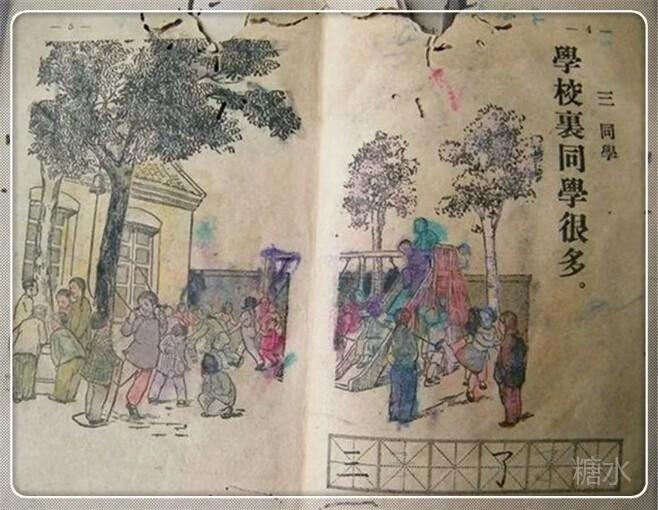 — 4 —
三 同學
學校裏同學很多。
三 了
— 5 —
糖水